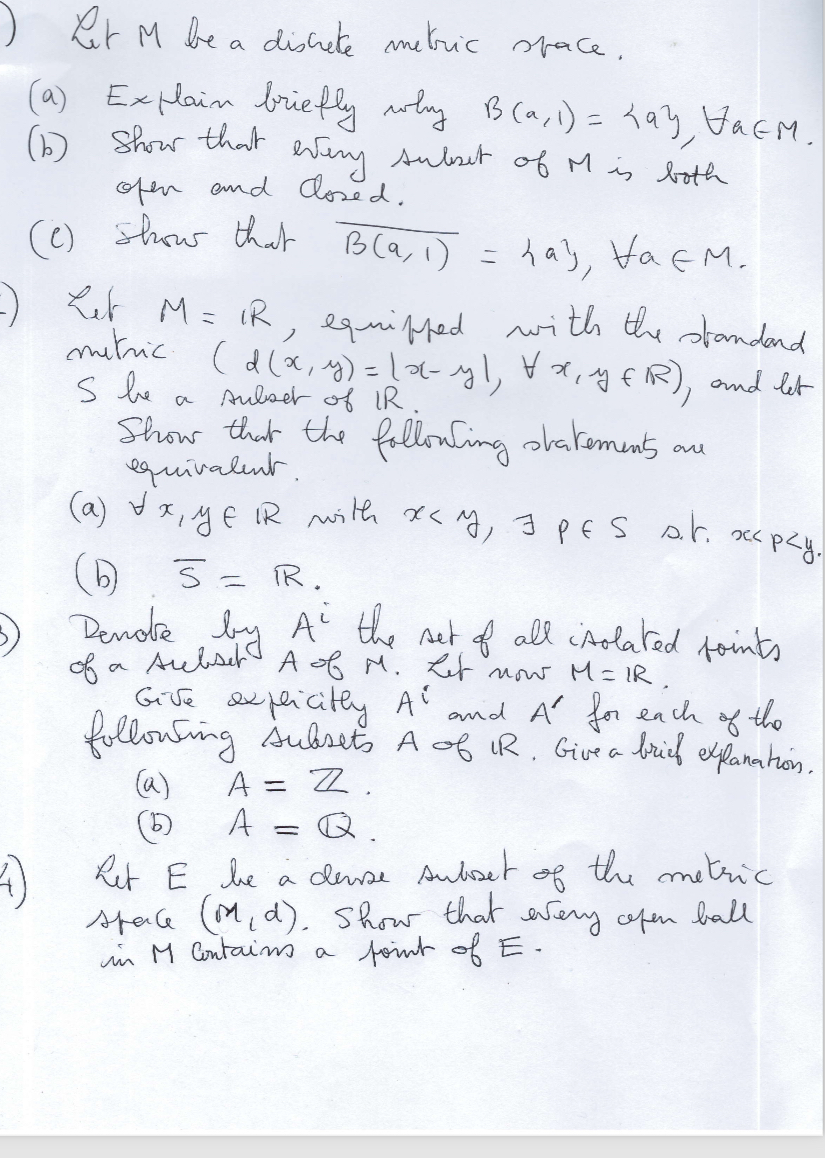 ) Let M be a discrete metric space.
(a) Explain briefly why B(a,1) = {a}, ∀a∈M.
(b) Show that every subset of M is both
open and closed.
(c) Show that \overline{B(a,1)} = {a}, ∀a∈M.
) Let M = ℝ, equipped with the standard
metric (d(x,y) = |x-y|, ∀x,y∈ℝ), and let
S be a subset of ℝ.
Show that the following statements are
equivalent.
(a) ∀x,y∈ℝ with x<y, ∃ p∈S s.t. x<p<y.
(b) \overline{S} = ℝ.
3) Denote by Aⁱ the set of all isolated points
of a subset A of M. Let now M = ℝ.
Give explicitly Aⁱ and A′ for each of the
following subsets A of ℝ. Give a brief explanation.
(a) A = ℤ.
(b) A = ℚ.
4) Let E be a dense subset of the metric
space (M,d). Show that every open ball
in M contains a point of E.